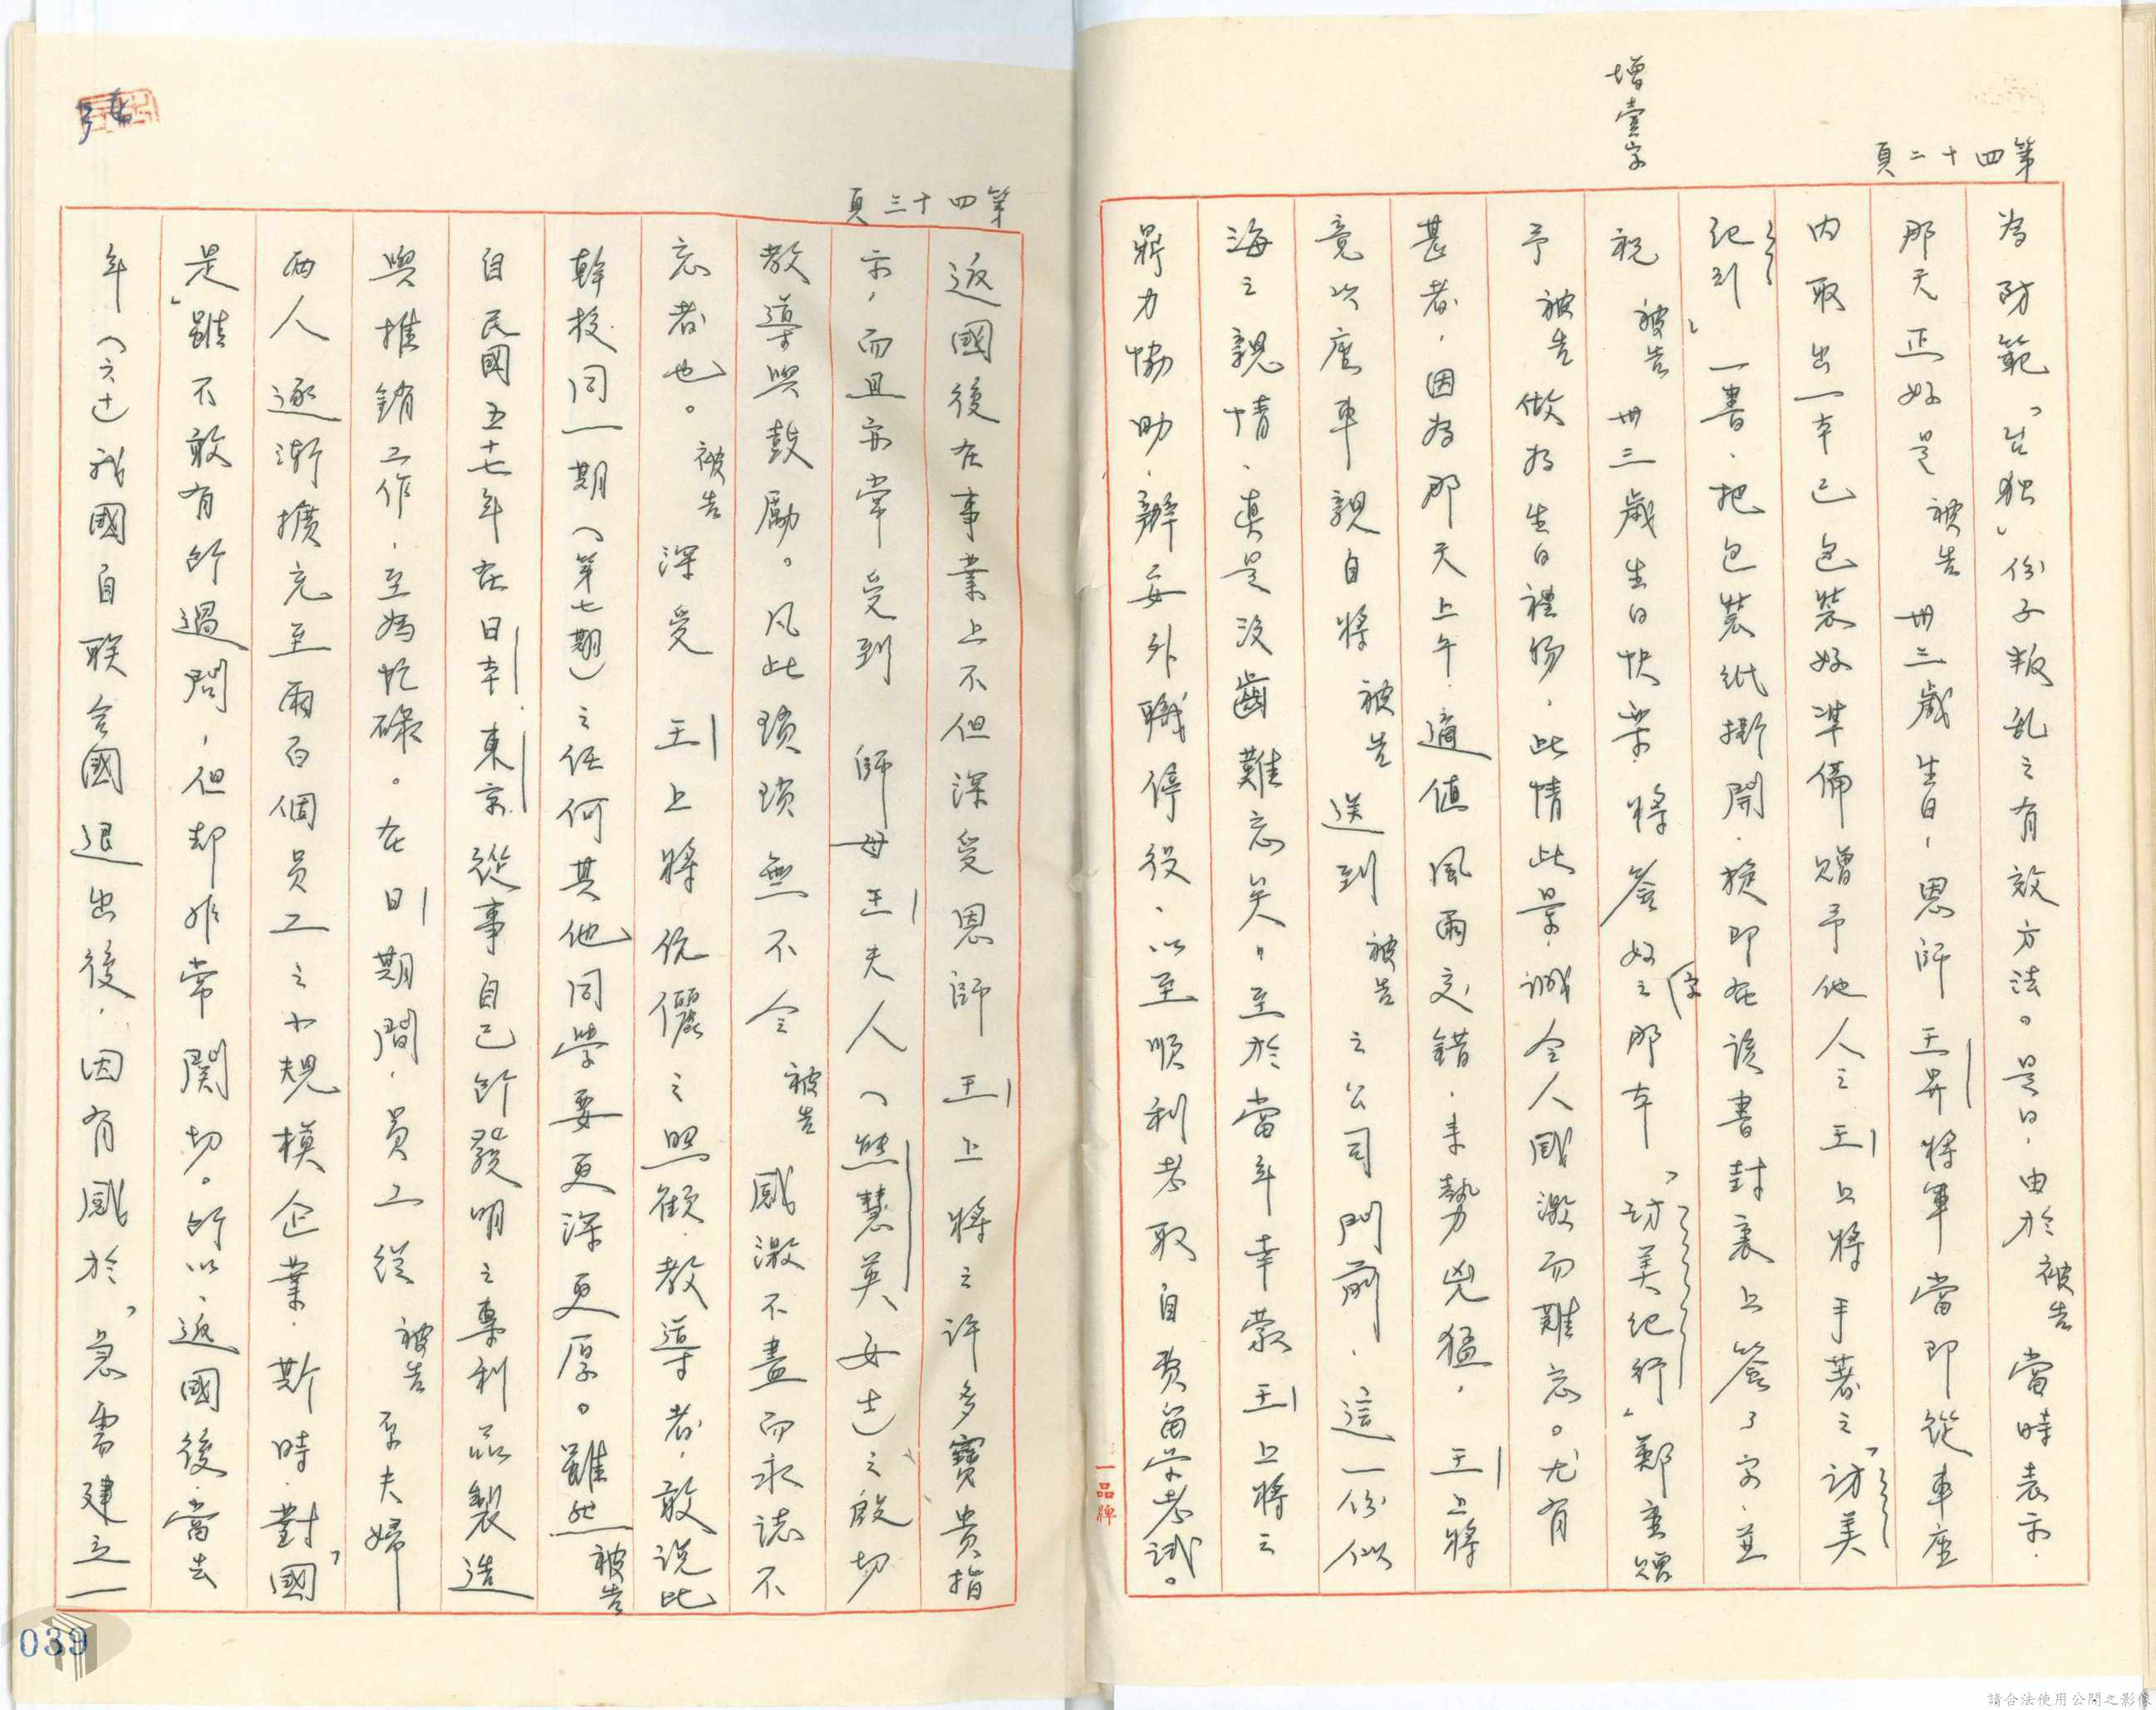 增壹字
第四十二頁
為防範「台独」份子叛乱之有效方法。是日，由於被告當時表示，
那天正好是被告卅三歲生日，恩師王昇將軍當即從車座
内取出一本已包裝好準備贈予他人之王上將手著之「訪美
紀行」一書，把包裝紙撕開，旋即在該書封裏上簽了字，並
祝被告卅三歲生日快樂，將簽好字之那本「訪美紀行」鄭重贈
予被告做為生日禮物，此情此景，誠令人感激而難忘。尤有
甚者，因為那天上午，適值風雨交錯，来勢兇猛，王上將
竟以座車親自將被告送到被告之公司門前，這一份似
海之親情，真是沒齒難忘矣！至於當年幸蒙王上將之
鼎力協助，辦妥外職停役，以至順利考取自費留学考試。
一品牌
第四十三頁
返國後在事業上不但深受恩師王上將之許多寶貴指
示，而且亦常受到師母王夫人（熊慧英女士）之殷切
教導與鼓勵。凡此瑣瑣無不令被告感激不盡而永誌不
忘者也。被告深受王上將伉儷之照顧，教導者，敢说比
幹校同一期（第七期）之任何其他同學要更深更厚。雖然被告
自民國五十七年在日本東京從事自己所發明之專利品製造
與推銷工作，至為忙碌。在日期間，員工從被告原夫婦
兩人逐漸擴充至兩百個員工之小規模企業，斯時，對「國
是」雖不敢有所過問，但却非常関切。所以，返國後，當去
年（六十）我國自联合國退出後，因有感於「急需建立一
039
請合法使用公開之影像